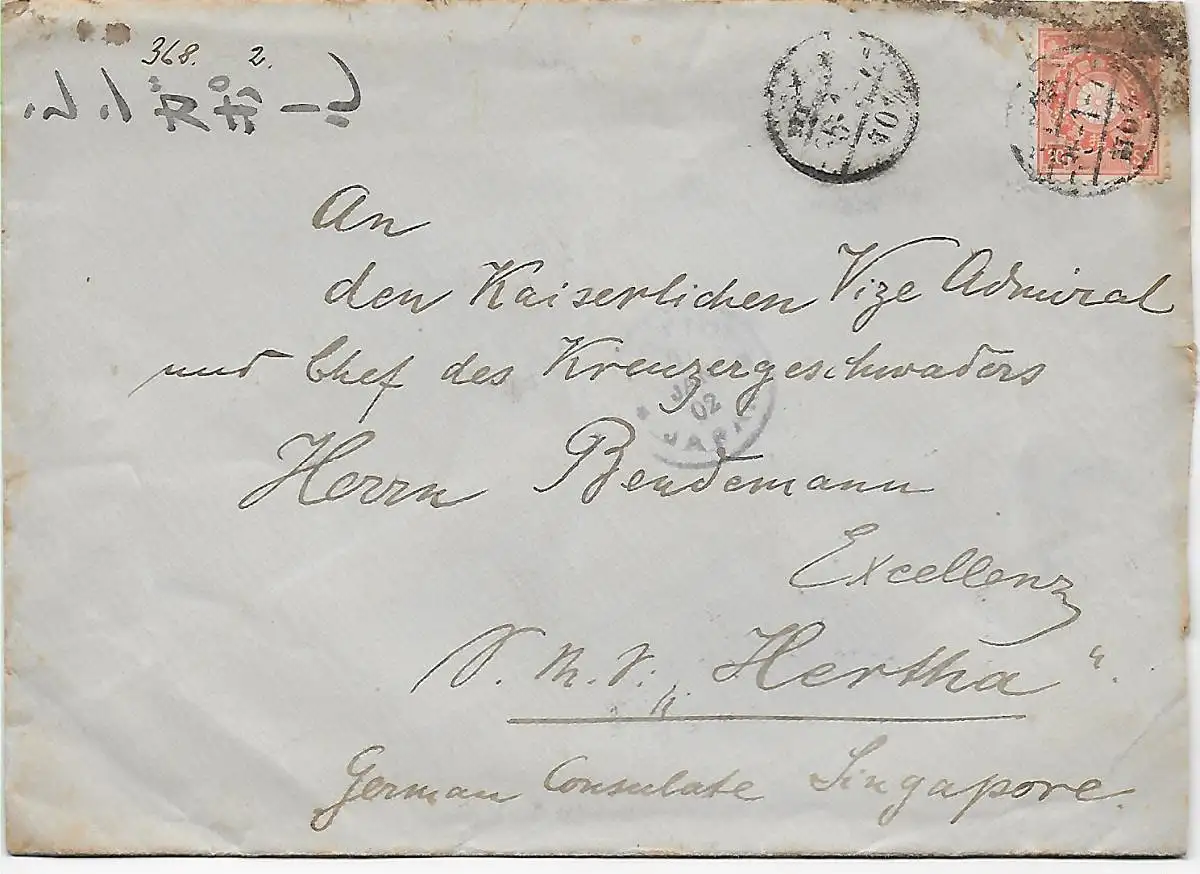 368. 2.
An
den Kaiserlichen Vize Admiral
und Chef des Kreuzergeschwaders
Herrn Bendemann
Excellenz
S. M. S. „Hertha“.
German Consulate Singapore.
MOJI
MOJI
JAN
02
JAPAN